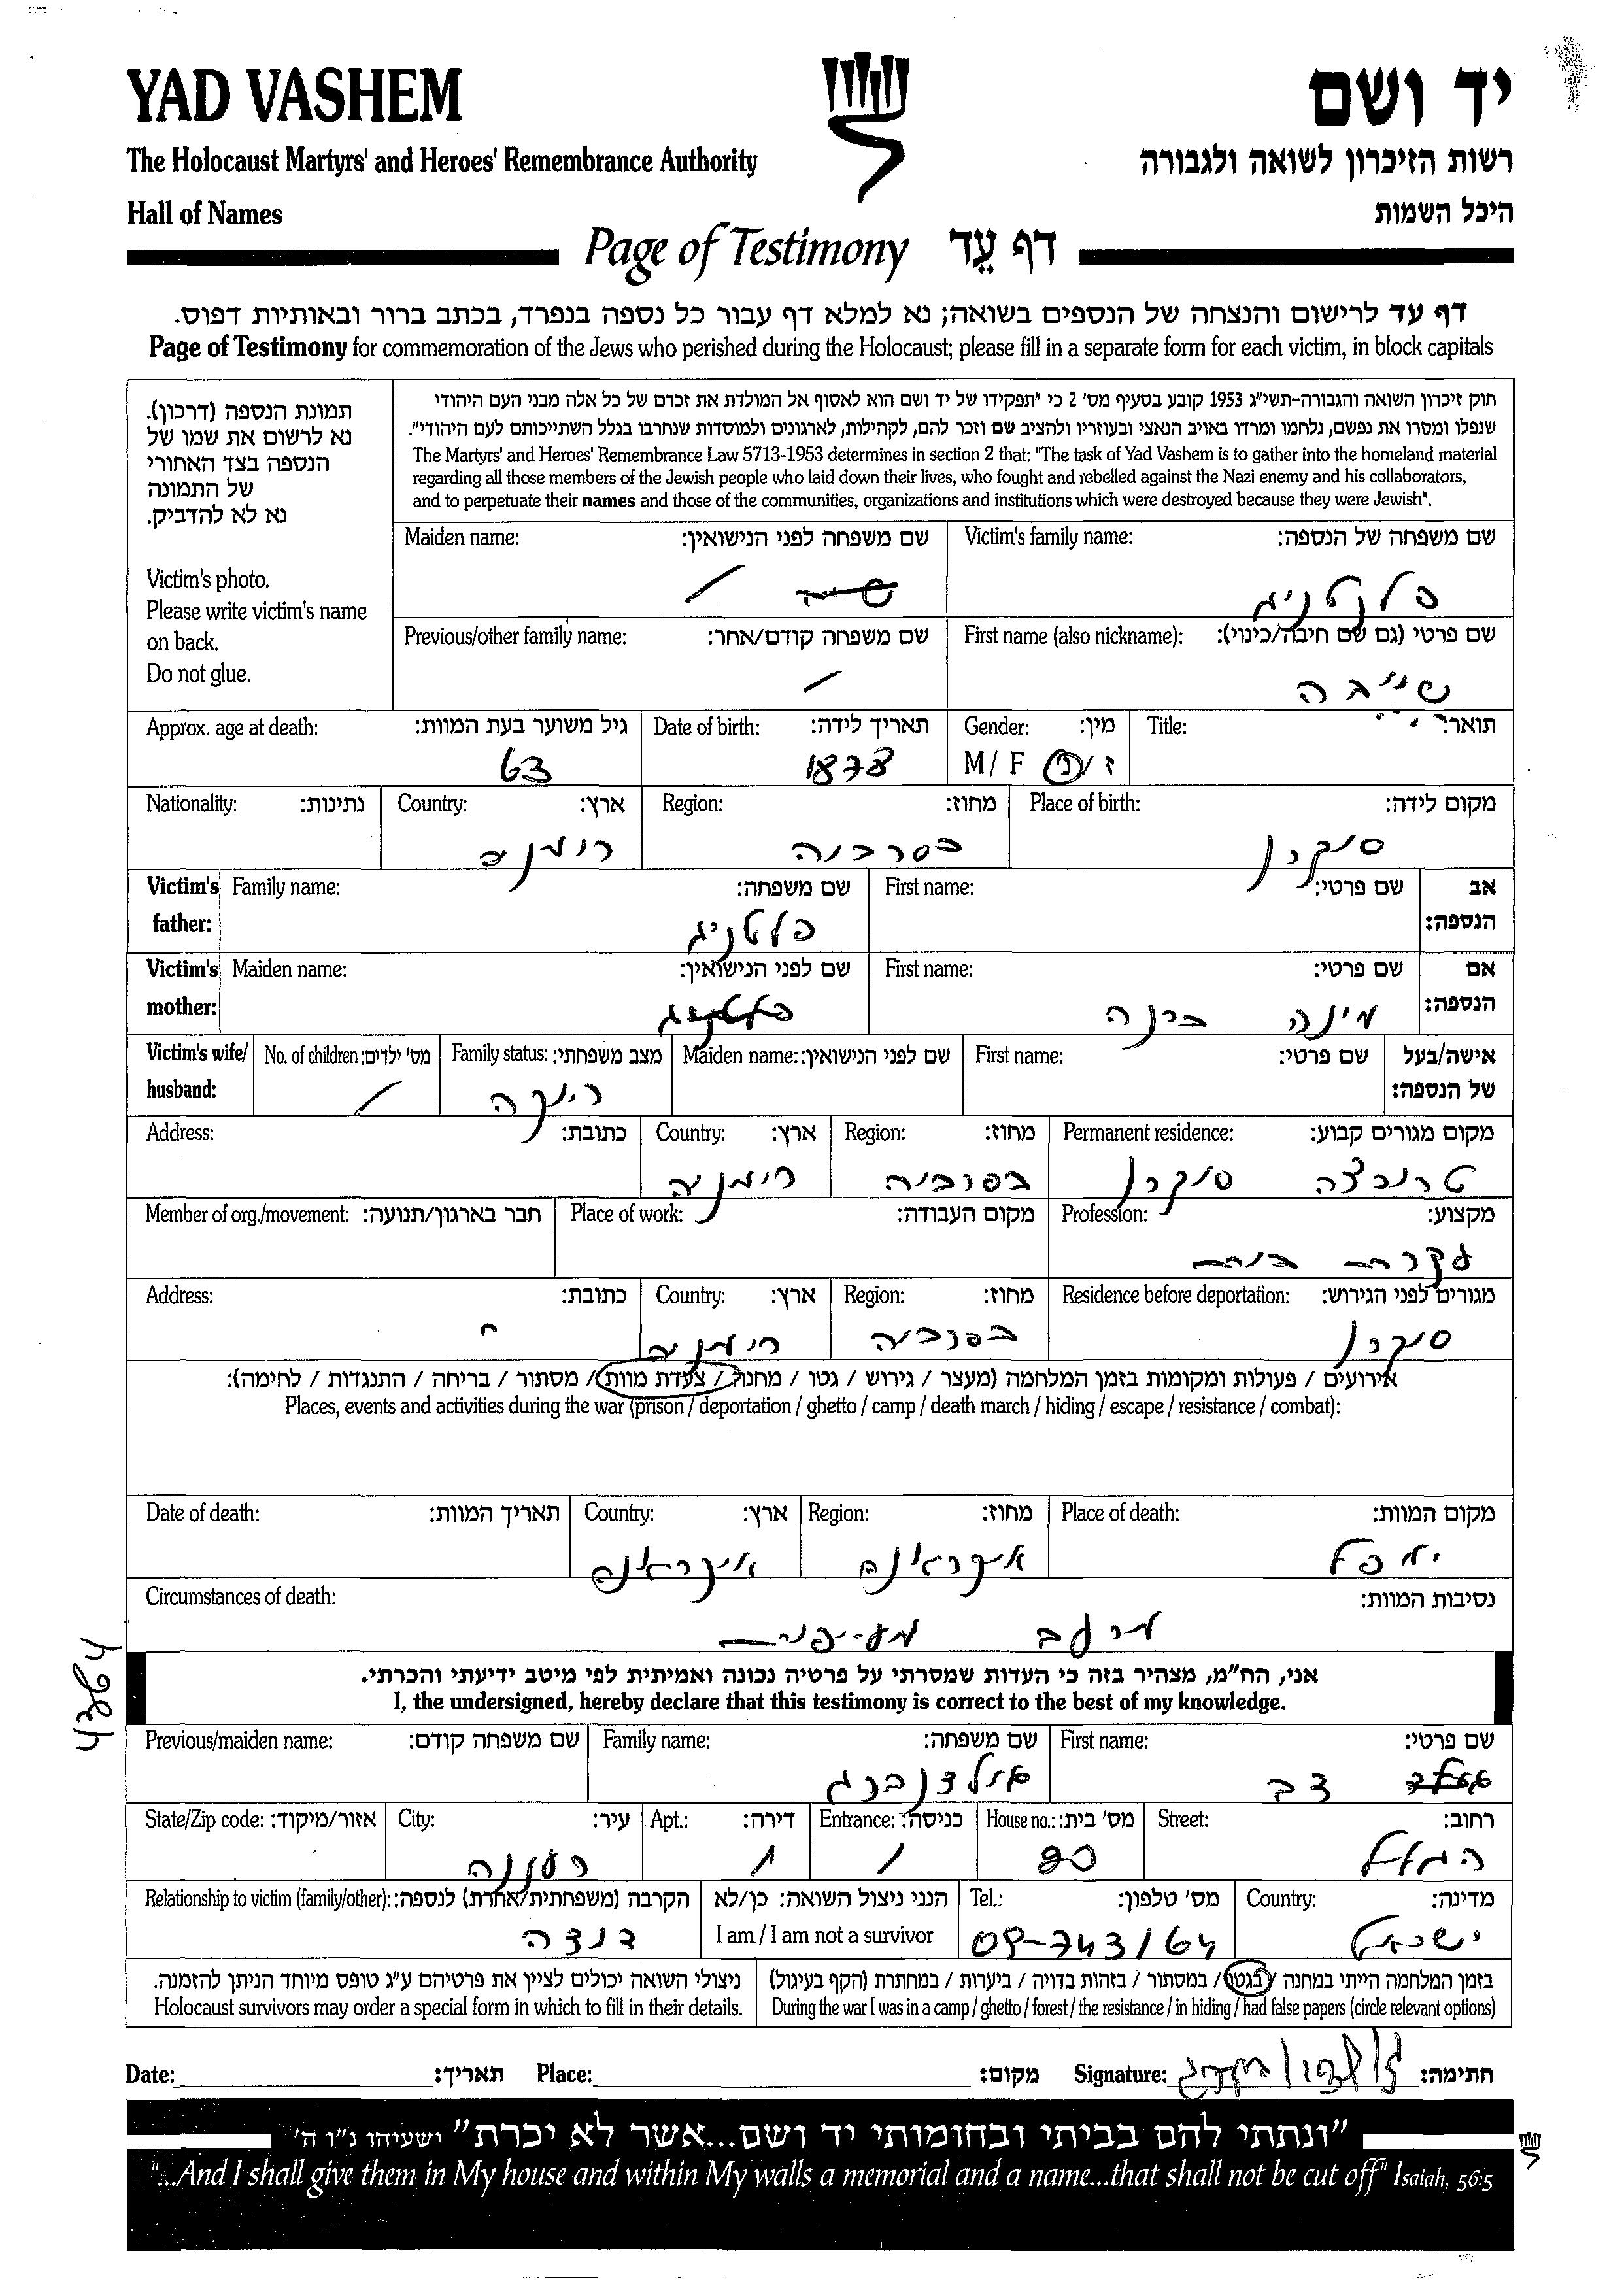 YAD VASHEM
יד ושם
The Holocaust Martyrs' and Heroes' Remembrance Authority
רשות הזיכרון לשואה ולגבורה
Hall of Names
היכל השמות
Page of Testimony דף עֵד
דף עד לרישום והנצחה של הנספים בשואה; נא למלא דף עבור כל נספה בנפרד, בכתב ברור ובאותיות דפוס.
Page of Testimony for commemoration of the Jews who perished during the Holocaust; please fill in a separate form for each victim, in block capitals
תמונת הנספה (דרכון).
נא לרשום את שמו של
הנספה בצד האחורי
של התמונה
נא לא להדביק.
Victim's photo.
Please write victim's name
on back.
Do not glue.
חוק זיכרון השואה והגבורה-תשי"ג 1953 קובע בסעיף מס' 2 כי "תפקידו של יד ושם הוא לאסוף אל המולדת את זכרם של כל אלה מבני העם היהודי
שנפלו ומסרו את נפשם, נלחמו ומרדו באויב הנאצי ובעוזריו ולהציב שם וזכר להם, לקהילות, לארגונים ולמוסדות שנחרבו בגלל השתייכותם לעם היהודי".
The Martyrs' and Heroes' Remembrance Law 5713-1953 determines in section 2 that: "The task of Yad Vashem is to gather into the homeland material
regarding all those members of the Jewish people who laid down their lives, who fought and rebelled against the Nazi enemy and his collaborators,
and to perpetuate their names and those of the communities, organizations and institutions which were destroyed because they were Jewish".
Victim's family name: שם משפחה של הנספה:
Maiden name: שם משפחה לפני הנישואין:
First name (also nickname): שם פרטי (גם שם חיבה/כינוי):
Previous/other family name: שם משפחה קודם/אחר:
שייבה
Title: תואר:
Gender: מין:
M / F ז / נ
Date of birth: תאריך לידה:
1878
Approx. age at death: גיל משוער בעת המוות:
63
Place of birth: מקום לידה:
סוקרן
Region: מחוז:
בסרביה
Country: ארץ:
רומניה
Nationality: נתינות:
Victim's father: אב הנספה:
First name: שם פרטי:
Family name: שם משפחה:
פלטניג
Victim's mother: אם הנספה:
First name: שם פרטי:
מינה
Maiden name: שם לפני הנישואין:
Victim's wife/ husband: אישה/בעל של הנספה:
First name: שם פרטי:
Maiden name: שם לפני הנישואין:
Family status: מצב משפחתי:
רווקה
No. of children: מס' ילדים:
Permanent residence: מקום מגורים קבוע:
סוקרן
Region: מחוז:
בסרביה
Country: ארץ:
רומניה
Address: כתובת:
Profession: מקצוע:
עקרת בית
Place of work: מקום העבודה:
Member of org./movement: חבר בארגון/תנועה:
Residence before deportation: מגורים לפני הגירוש:
סוקרן
Region: מחוז:
בסרביה
Country: ארץ:
רומניה
Address: כתובת:
אירועים / פעולות ומקומות בזמן המלחמה (מעצר / גירוש / גטו / מחנה / צעדת מוות / מסתור / בריחה / התנגדות / לחימה):
Places, events and activities during the war (prison / deportation / ghetto / camp / death march / hiding / escape / resistance / combat):
Place of death: מקום המוות:
Region: מחוז:
אוקראינה
Country: ארץ:
אוקראינה
Date of death: תאריך המוות:
Circumstances of death: נסיבות המוות:
מרעב
אני, הח"מ, מצהיר בזה כי העדות שמסרתי על פרטיה נכונה ואמיתית לפי מיטב ידיעתי והכרתי.
I, the undersigned, hereby declare that this testimony is correct to the best of my knowledge.
First name: שם פרטי:
צבי
Family name: שם משפחה:
גולדנברג
Previous/maiden name: שם משפחה קודם:
Street: רחוב:
הגליל
House no.: מס' בית:
90
Entrance: כניסה:
1
Apt.: דירה:
1
City: עיר:
רעננה
State/Zip code: אזור/מיקוד:
Country: מדינה:
ישראל
Tel.: מס' טלפון:
09-743164
הנני ניצול השואה: כן/לא
I am / I am not a survivor
Relationship to victim (family/other): הקרבה (משפחתית/אחרת) לנספה:
דודה
בזמן המלחמה הייתי במחנה / בגטו / במסתור / בזהות בדויה / ביערות / במחתרת (הקף בעיגול)
During the war I was in a camp / ghetto / forest / the resistance / in hiding / had false papers (circle relevant options)
ניצולי השואה יכולים לציין את פרטיהם ע"ג טופס מיוחד הניתן להזמנה.
Holocaust survivors may order a special form in which to fill in their details.
Date: תאריך: Place: מקום: Signature: חתימה:
"ונתתי להם בביתי ובחומותי יד ושם...אשר לא יכרת" ישעיהו נ"ו ה'
"...And I shall give them in My house and within My walls a memorial and a name...that shall not be cut off" Isaiah, 56:5